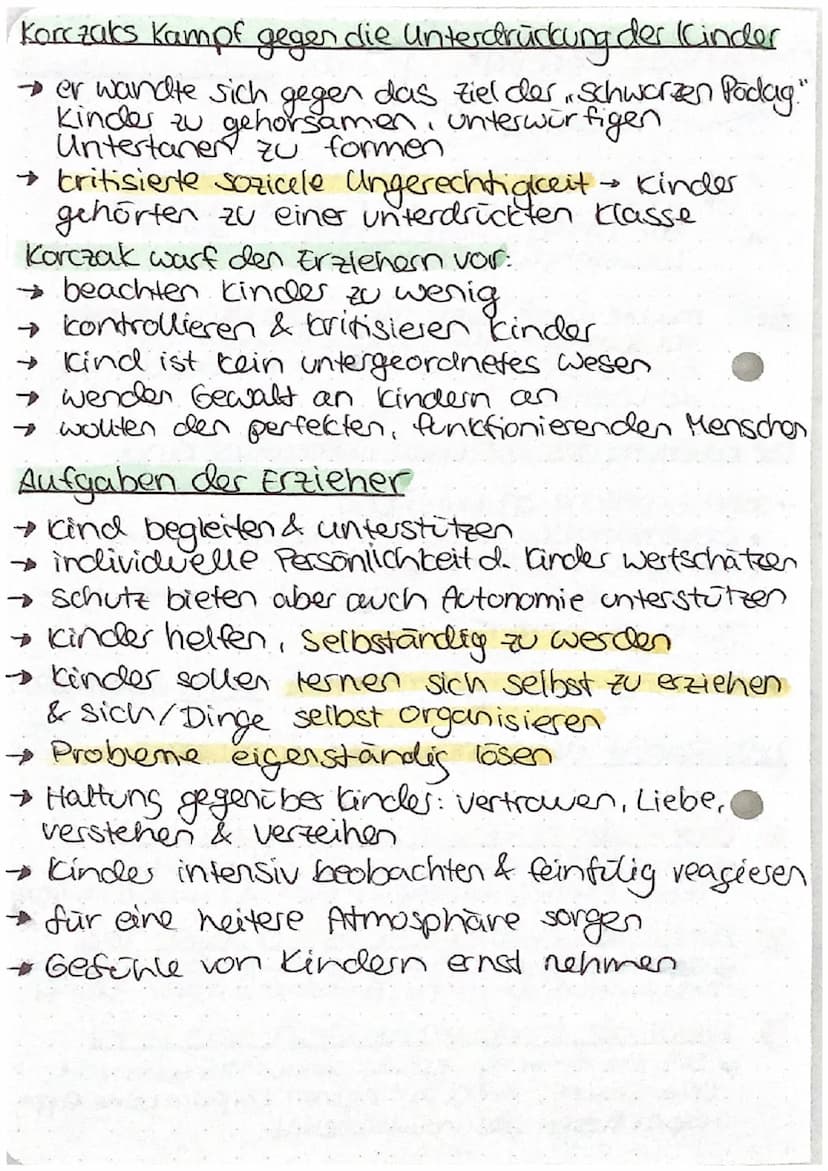 Korczaks Kampf gegen die Unterdrückung der Kinder
→ er wandte sich gegen das Ziel der „Schwarzen Pädag."
Kinder zu gehorsamen, unterwürfigen
Untertanen zu formen
→ kritisierte soziale Ungerechtigkeit → Kinder
gehörten zu einer unterdrückten Klasse
Korczak warf den Erziehern vor:
→ beachten Kinder zu wenig
→ kontrollieren & kritisieren Kinder
→ Kind ist kein untergeordnetes Wesen
→ wenden Gewalt an Kindern an
→ wollten den perfekten, funktionierenden Menschen
Aufgaben der Erzieher
→ Kind begleiten & unterstützen
→ individuelle Persönlichkeit d. Kinder wertschätzen
→ Schutz bieten aber auch Autonomie unterstützen
→ Kinder helfen, selbständig zu werden
→ Kinder sollen lernen sich selbst zu erziehen
& sich/Dinge selbst organisieren
→ Probeme eigenständig lösen
→ Haltung gegenüber Kinder: vertrauen, Liebe,
verstehen & verzeihen
→ Kinder intensiv beobachten & feinfülig reagieren
→ für eine heitere Atmosphäre sorgen
→ Gefühle von Kindern ernst nehmen